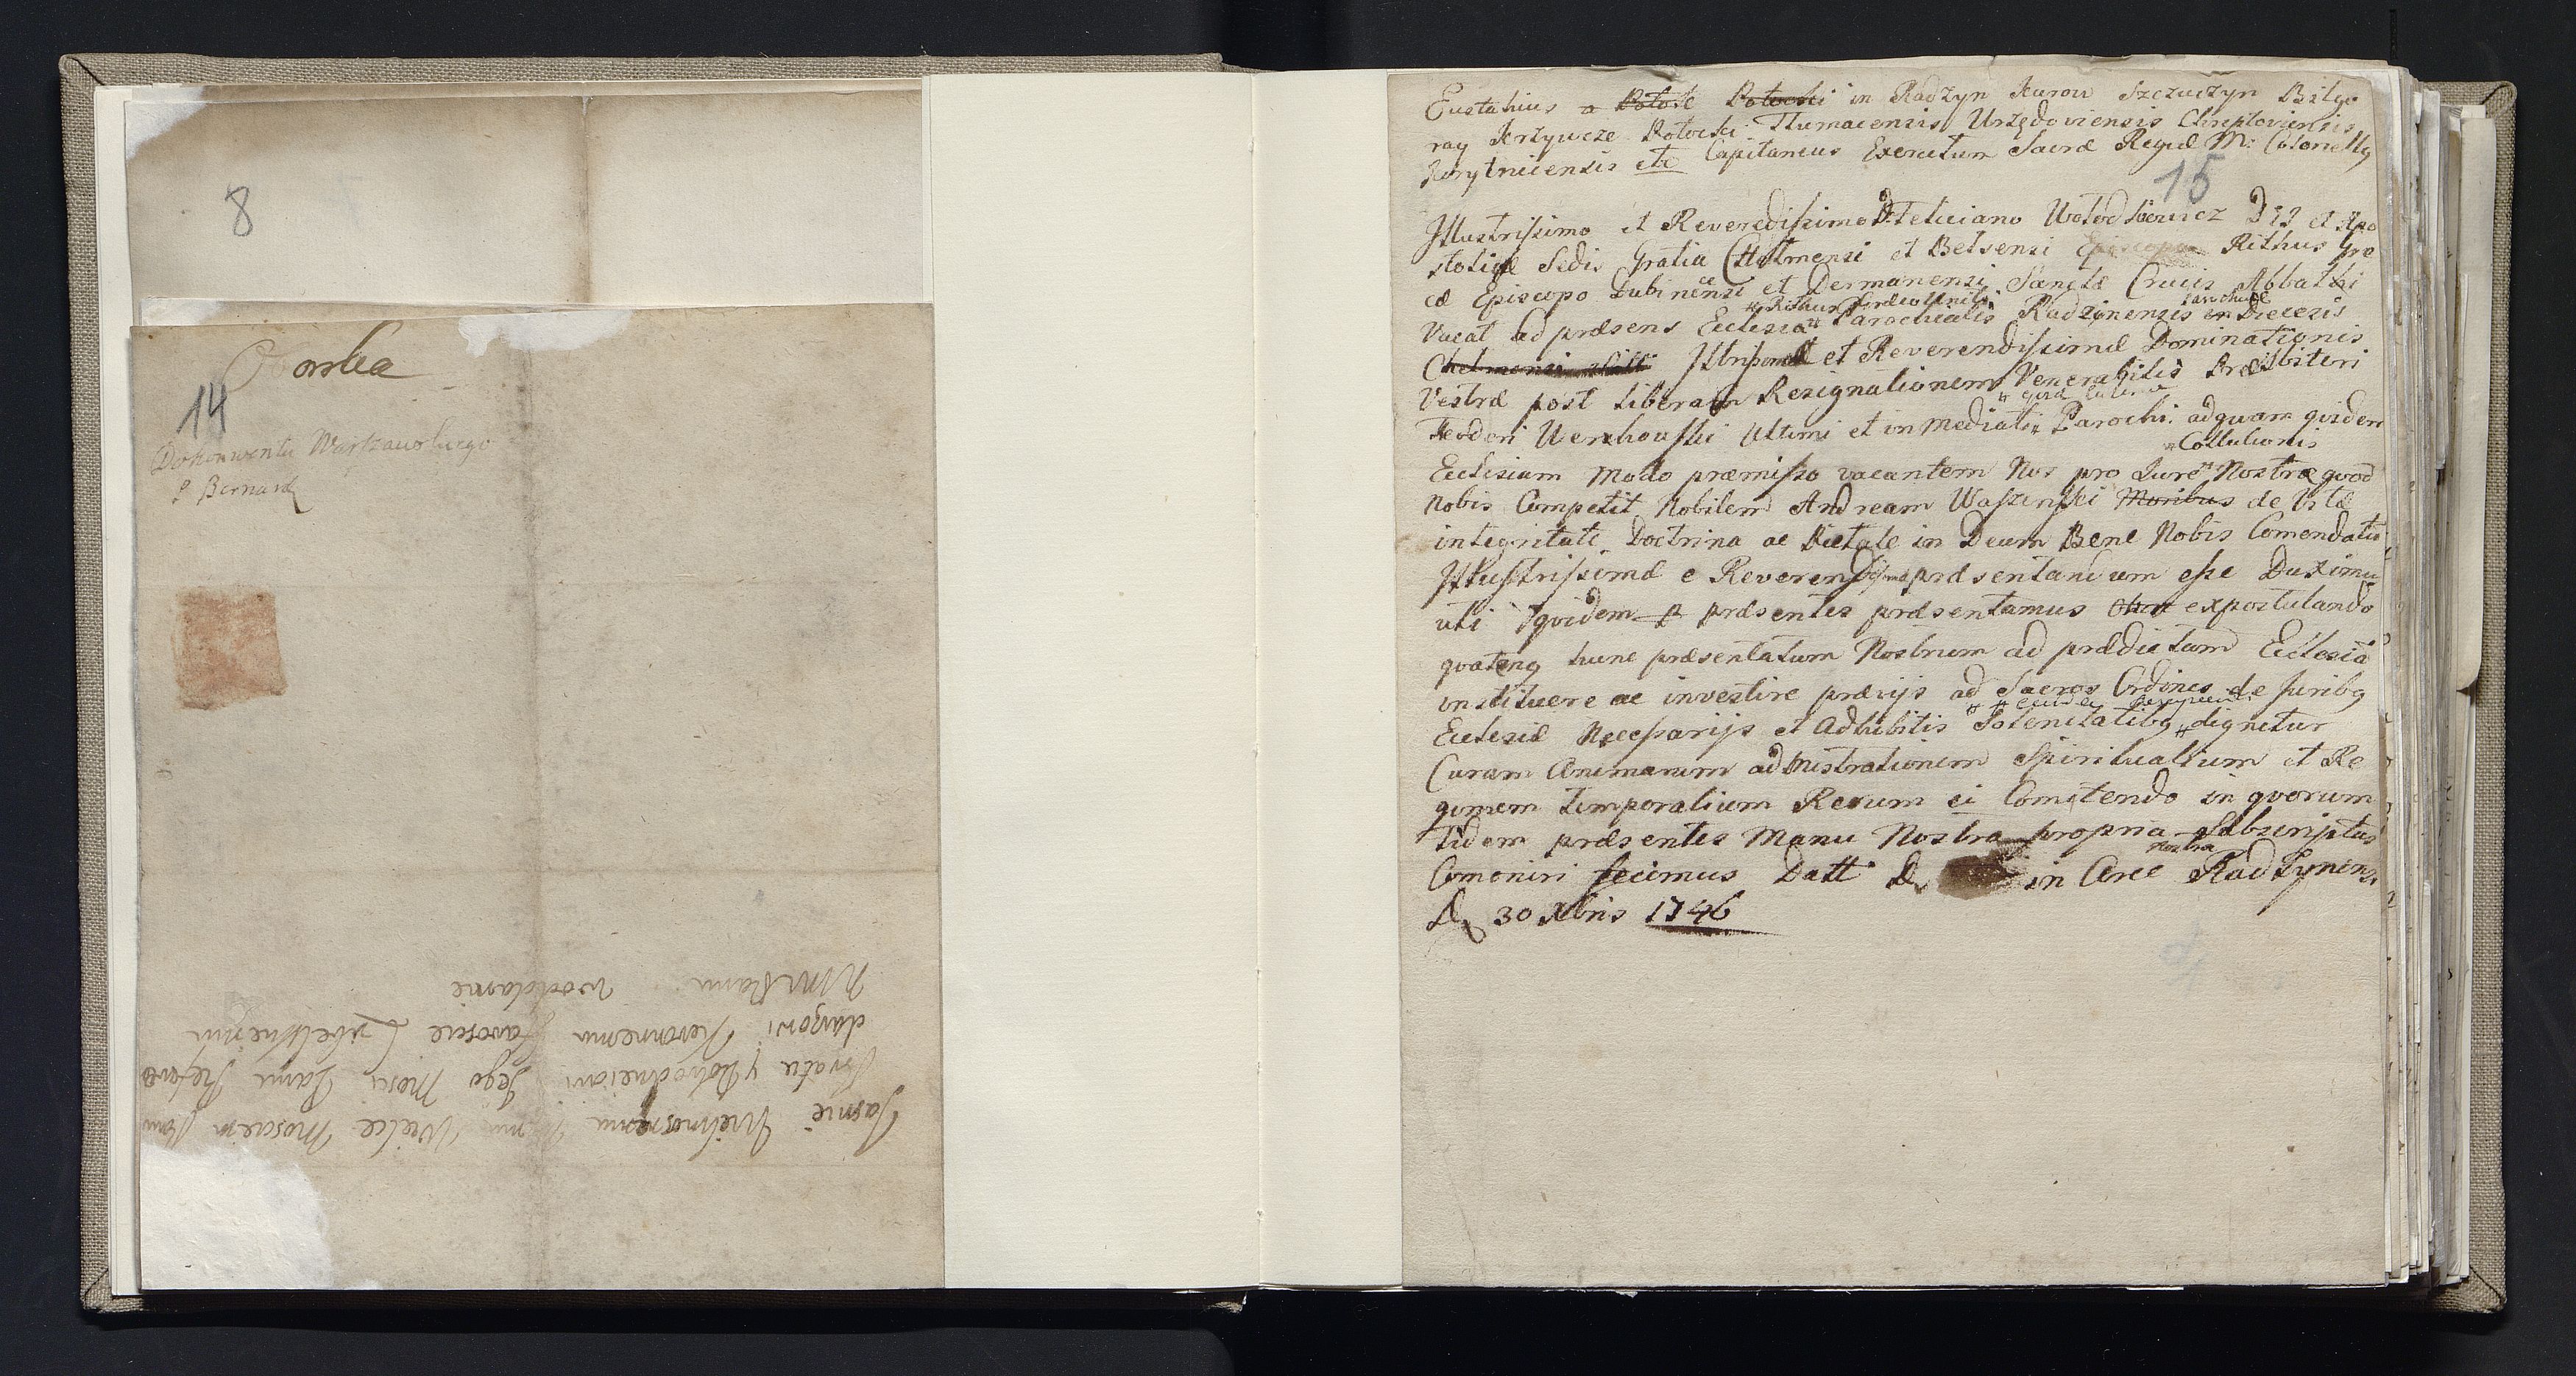 8
14
Dokonwentu Warszawskiego
P Bernard
Jasnie Wielmoznemu Panu Wielce Mosciem Panu
Bratu y Dobrodzieiowi Jego Mosci Panu Refere
darzowi Koronnemu Staroscie
oddanie
Eustahius a Potok Potocki in Radzyn Kurow Szczuczyn Bilgo
ray Krzywcze Potocki Tlumacensis Urzędoviensis
Korytnicensis etc Capitaneus Exercituum Sacræ Regiæ M: Colonellg
15
Illustrissimo et Reveredissimo D: Feliciano Wolodkowicz DEI et Apo
stolicæ Sedis Gratia Chelmensi et Belsensi Episcopo Rithus Græ
cæ Episcopo Dubinensi et Dermanensi Sanctæ Crucis Abbathi
Rithus Græco Uniti Parochiæ
Vacat ad præsens Ecclesia Parochialis Radzinensis in Diecesis
Chelmensi Illrissimæ et Reverendissimæ Dominationis
Vestræ post liberam Resignationem Venerabilis Præsbiteri
Teodori Uerzhouski Ultimi et in mediati Parochi. ad quam quidem
Collationis
Eclesiam modo præmisso vacantem Nos pro Jure Nostræ qvod
Nobis Competit Nobilem Andream Waszynski Moribus de Vitæ
integritate Doctrina ac Pietate in Deum Bene Nobis Comendatu
Illustrissimæ e Reverendissimæ præsentandum esse Duximu
uti qvidem p præsentes præsentamus expostulando
qvateng hunc præsentatum Nostrum ad prædictam Ecclesiā
instituere ac investire prævijs ad Sacros Ordines de juribg
Eclesiæ Necessarijs et Adhibitis Solenitatibg dignetur
Curam Animarum administrationem Spiritualium et Re
gimem temporalium Rerum ei Comitendo in qvorum
fidem præsentes Manu Nostra propria Subscriptas
nostra
Comoniri fecimus Datt D in Arce Radzynensi
D 30 Xbris 1746